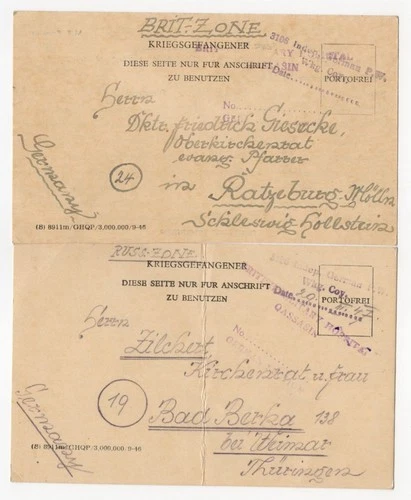 BRIT-ZONE
KRIEGSGEFANGENER
DIESE SEITE NUR FUR ANSCHRIFT
ZU BENUTZEN
3106 Indep. German P.W.
Wkg. Coy.
Date
PORTOFREI
No.
Herrn
Dktr. Friedrich Giesecke,
Oberkirchenrat
evang. Pfarrer
in Ratzeburg Mölln
Schleswig Hollstein
Germany
24
(B) 8911m/GHQP/3,000,000/9-46
RUSS-ZONE
KRIEGSGEFANGENER
DIESE SEITE NUR FUR ANSCHRIFT
ZU BENUTZEN
Indep. German P.W.
Wkg. Coy.
Date
PORTOFREI
BRITISH MILITARY HOSPITAL
QASSASIN
No.
Herrn
Zilchert
Kirchenrat u. Frau
19
Bad Berka 138
bei Weimar
Thüringen
Germany
(B) 8911m/GHQP/3,000,000/9-46